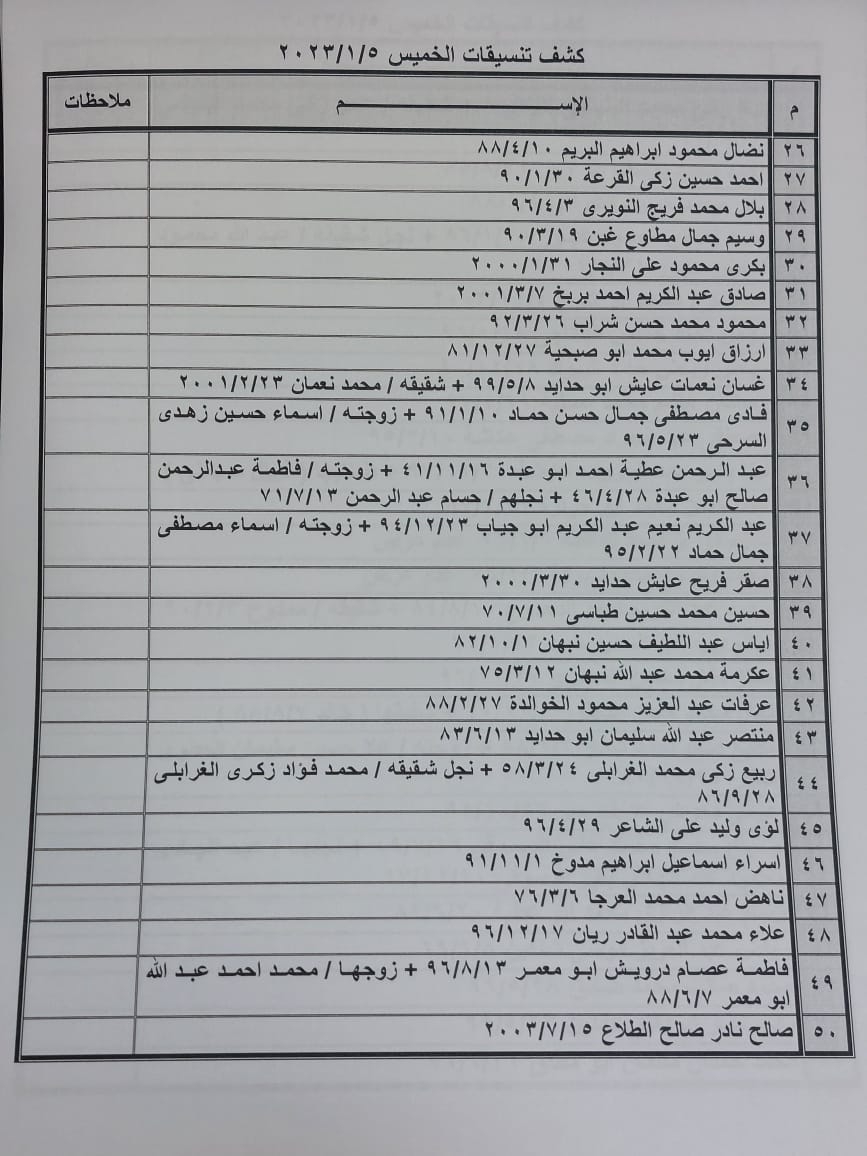 كشف تنسيقات الخميس ٢٠٢٣/١/٥
م الإســـم ملاحظات
٢٦ نضال محمود ابراهيم البريم ٨٨/٤/١٠
٢٧ احمد حسين زكى القرعة ٩٠/١/٣٠
٢٨ بلال محمد فريج النويرى ٩٦/٤/٣
٢٩ وسيم جمال مطاوع غبن ٩٠/٣/١٩
٣٠ بكرى محمود على النجار ٢٠٠٠/١/٣١
٣١ صادق عبد الكريم احمد بربخ ٢٠٠١/٣/٧
٣٢ محمود محمد حسن شراب ٩٢/٣/٢٦
٣٣ ارزاق ايوب محمد ابو صبحية ٨١/١٢/٢٧
٣٤ غسان نعمات عايش ابو حدايد ٩٩/٥/٨ + شقيقه / محمد نعمان ٢٠٠١/٢/٢٣
٣٥ فادى مصطفى جمال حسن حماد ٩١/١/١٠ + زوجته / اسماء حسين زهدى
السرحى ٩٦/٥/٢٣
٣٦ عبد الرحمن عطية احمد ابو عبدة ٤١/١١/١٦ + زوجته / فاطمة عبدالرحمن
صالح ابو عبدة ٤٦/٤/٢٨ + نجلهم / حسام عبد الرحمن ٧١/٧/١٣
٣٧ عبد الكريم نعيم عبد الكريم ابو جياب ٩٤/١٢/٢٣ + زوجته / اسماء مصطفى
جمال حماد ٩٥/٢/٢٢
٣٨ صقر فريح عايش حدايد ٢٠٠٠/٣/٣٠
٣٩ حسين محمد حسين طباسى ٧٠/٧/١١
٤٠ اياس عبد اللطيف حسين نبهان ٨٢/١٠/١
٤١ عكرمة محمد عبد الله نبهان ٧٥/٣/١٢
٤٢ عرفات عبد العزيز محمود الخوالدة ٨٨/٢/٢٧
٤٣ منتصر عبد الله سليمان ابو حدايد ٨٣/٦/١٣
٤٤ ربيع زكى محمد الغرابلى ٥٨/٣/٢٤ + نجل شقيقه / محمد فؤاد زكرى الغرابلى
٨٦/٩/٢٨
٤٥ لؤى وليد على الشاعر ٩٦/٤/٢٩
٤٦ اسراء اسماعيل ابراهيم مدوخ ٩١/١١/١
٤٧ ناهض احمد محمد العرجا ٧٦/٣/٦
٤٨ علاء محمد عبد القادر ريان ٩٦/١٢/١٧
٤٩ فاطمة عصام درويش ابو معمر ٩٦/٨/١٣ + زوجها / محمد احمد عبد الله
ابو معمر ٨٨/٦/٧
٥٠ صالح نادر صالح الطلاع ٢٠٠٣/٧/١٥